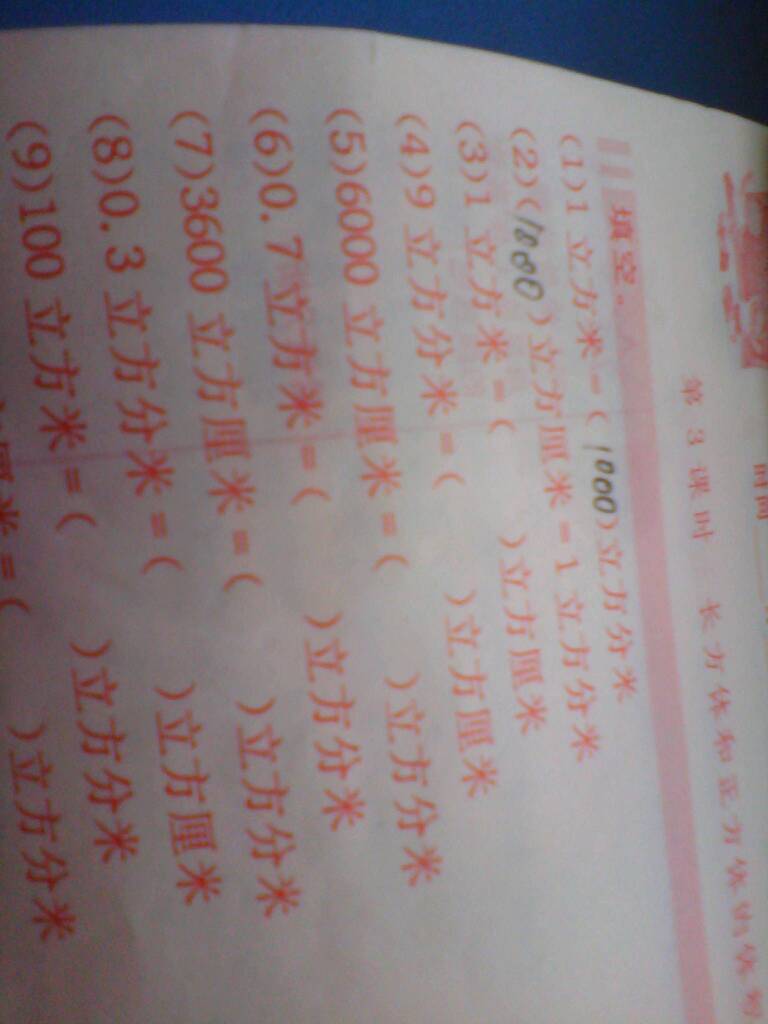 时间
第3课时 长方体和正方体的体积
填空。
(1)1立方米=(1000)立方分米
(2)(1000)立方厘米=1立方分米
(3)1立方米=( )立方厘米
(4)9立方分米=( )立方厘米
(5)6000立方厘米=( )立方分米
(6)0.7立方米=( )立方分米
(7)3600立方厘米=( )立方分米
(8)0.3立方分米=( )立方厘米
(9)100立方米=( )立方分米
厘米=( )立方分米